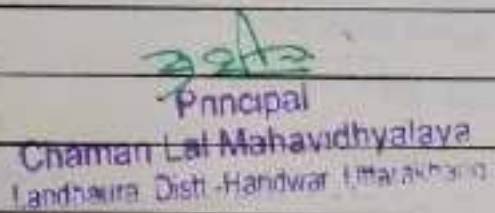 Principal
Chaman Lal Mahavidhyalaya
Landhaura Distt.-Haridwar Uttarakhand